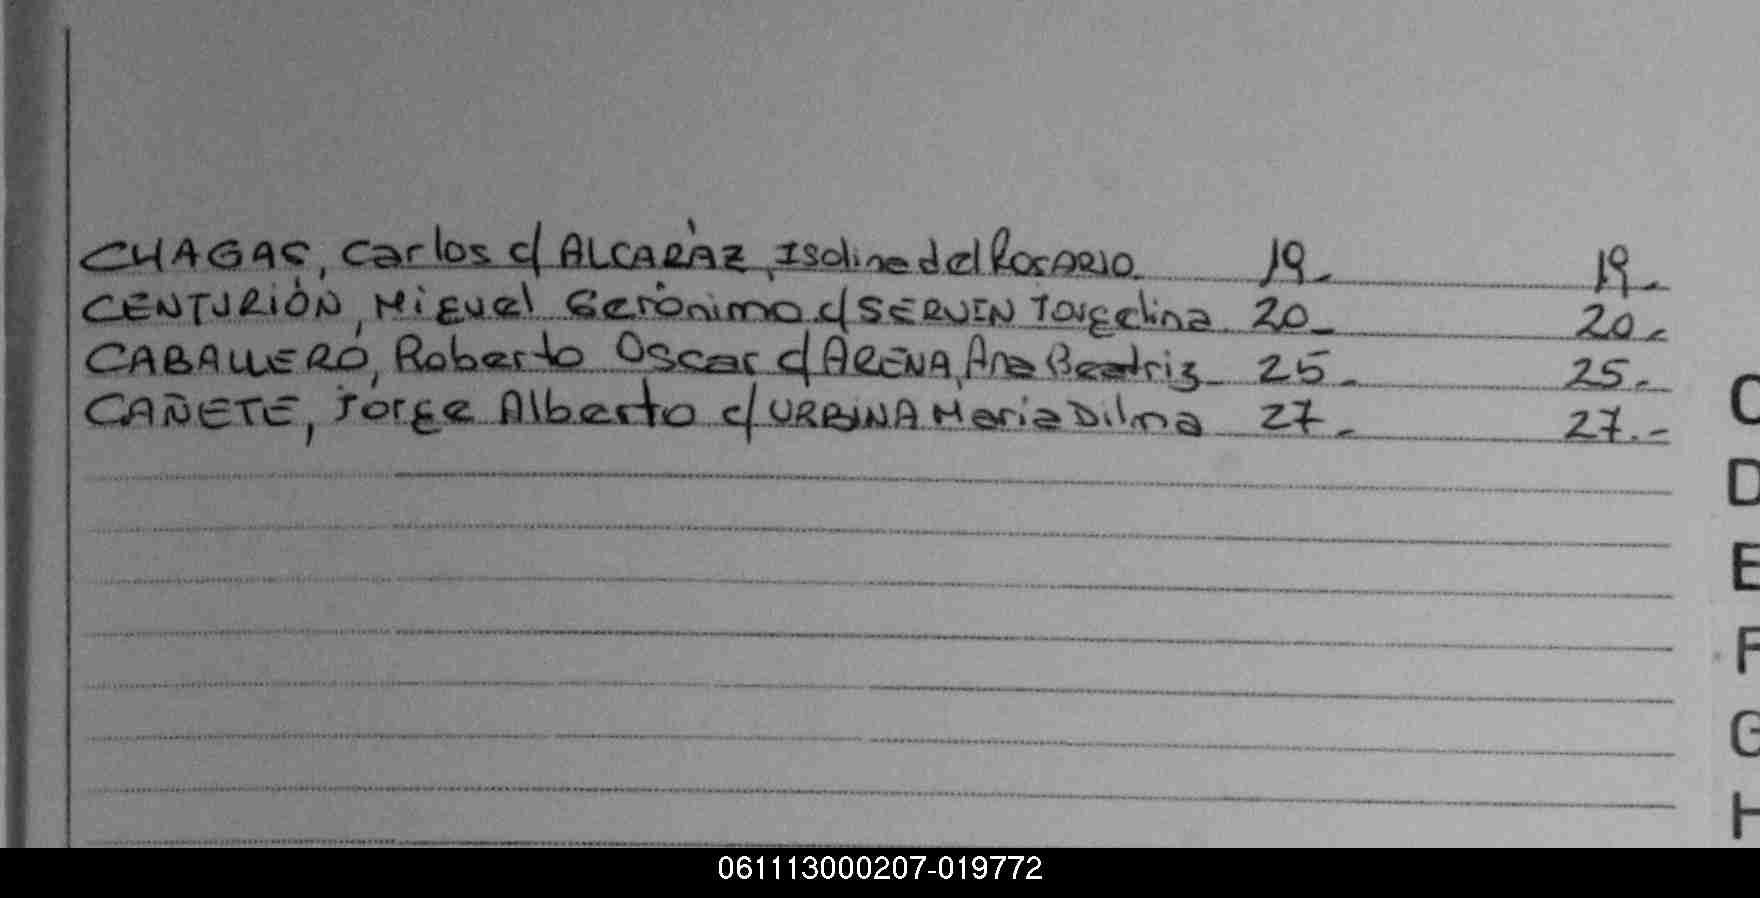 CHAGAS, Carlos c/ ALCARÁZ, Isolina del ROSARIO. 19- 19-
CENTURIÓN, Miguel Gerónimo c/ SERVIN Jorgelina 20- 20-
CABALLERO, Roberto Oscar c/ ARENA, Ana Beatriz 25- 25.-
CAÑETE, Jorge Alberto c/ URBINA Maria Dilma 27- 27.-
C
D
E
F
G
H
061113000207-019772